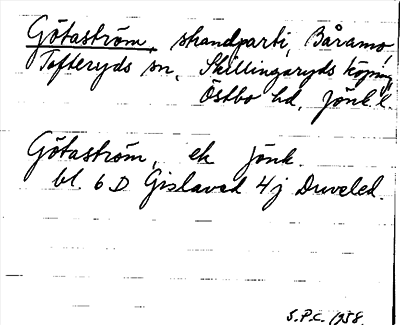 Götaström, strandparti, Båramo,
Tofteryds sn, Skillingaryds köping,
Östbo hd, Jönk. l.
Götaström, ek Jönk.
bl. 6 D Gislaved 4j Druveled.
S.P.C. 1958.